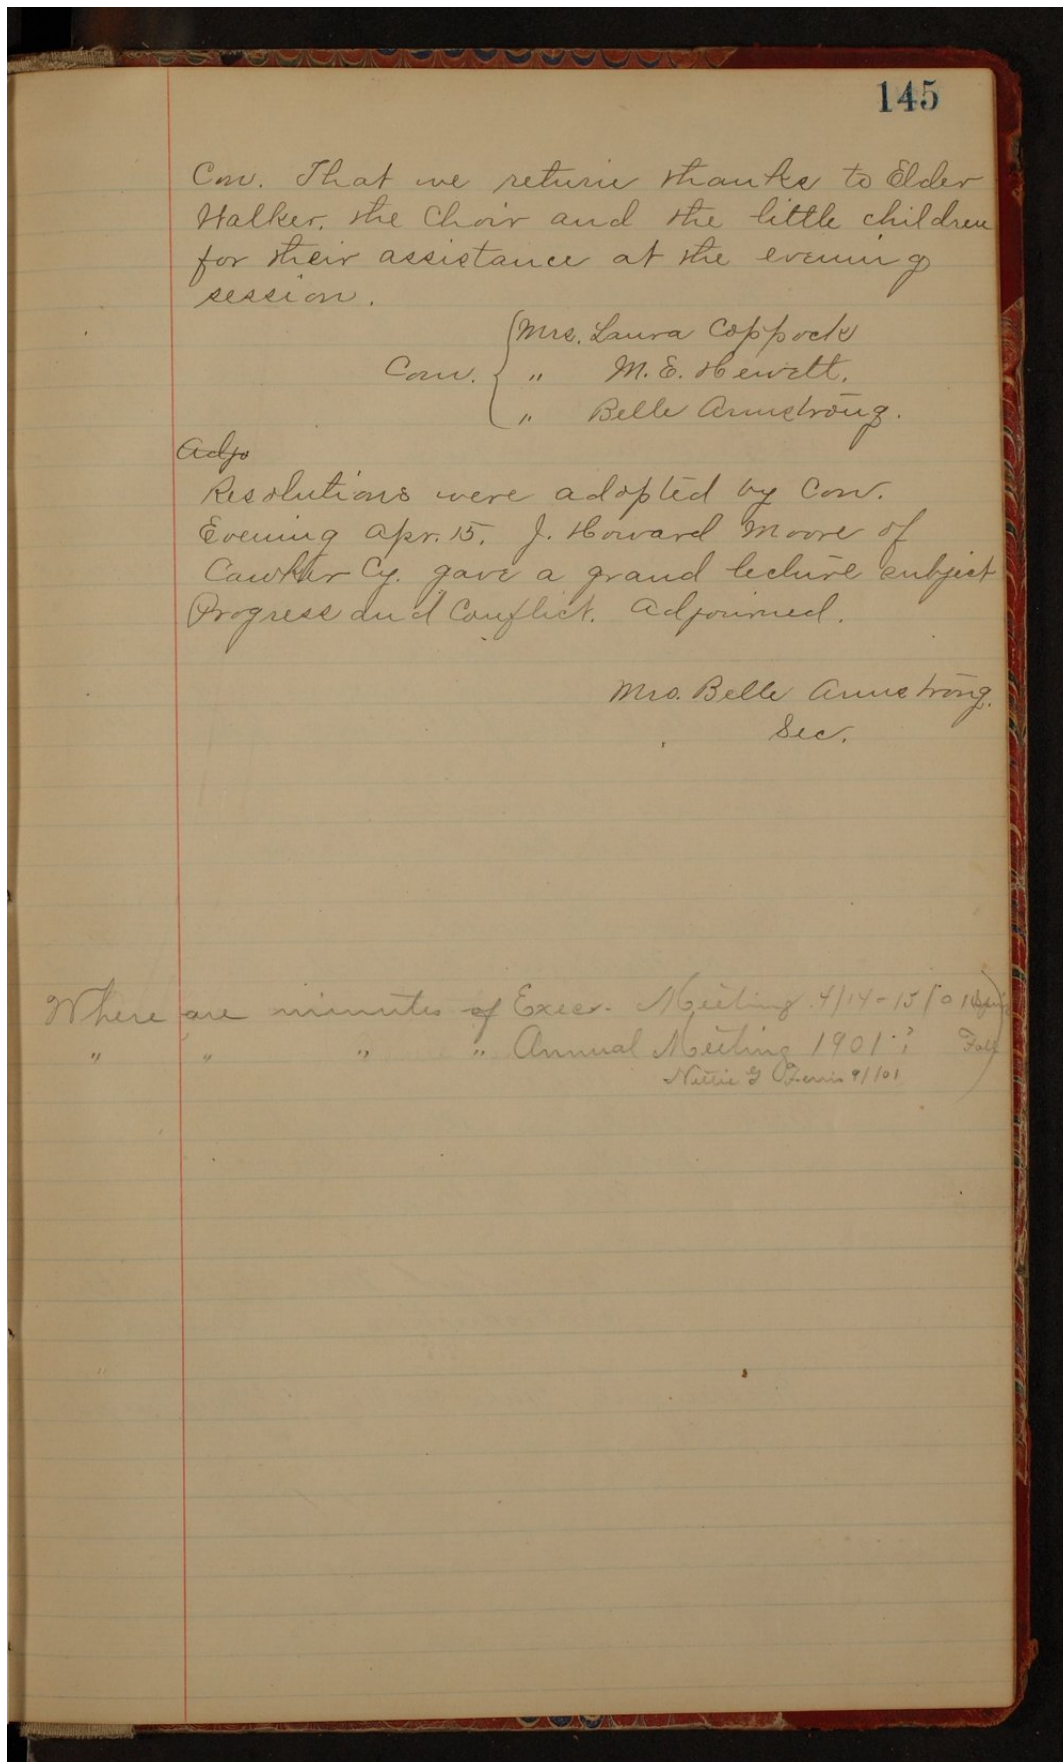 145
Con. That we return thanks to Elder
Walker, the Choir and the little children
for their assistance at the evening
session.
Mrs. Laura Coppock
Com. " M. E. Hewett.
" Belle Armstrong.
Adjo
Resolutions were adopted by Con.
Evening Apr. 15. J. Howard Moore of
Cawker Cy. gave a grand lecture subject
Progress and Conflict. Adjourned.
Mrs. Belle Armstrong.
Sec.
Where are minutes of Exec. Meeting 4/14-15/01
" " " " Annual Meeting 1901? Fall
Nettie G 9/101